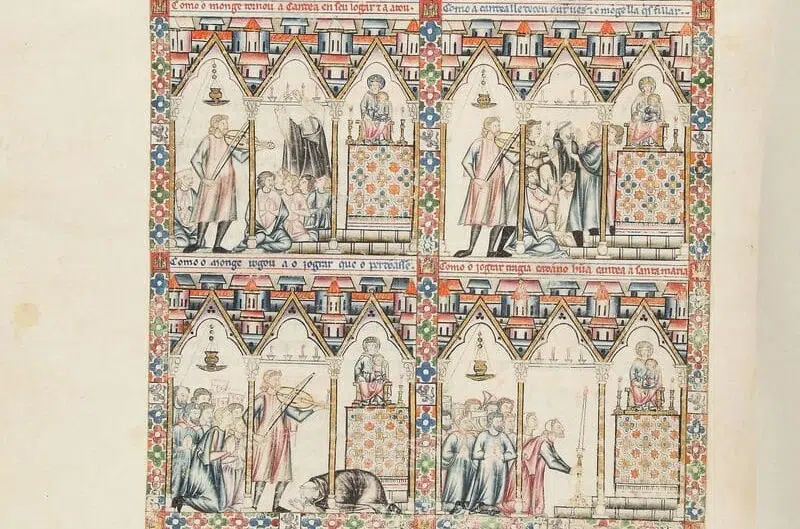 Como o monge tornou a candea en seu logar τ a atou.
Como a candea lle deceu outra ves τ o monge lla q̇s fillar.
Como o monge rogou a o jograr que o perdoasse.
Como o jograr tragia cadano hũa candea a santa maria